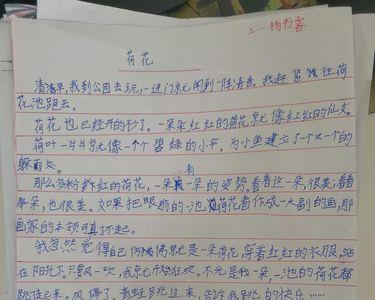 三.一 杨
荷花
清清早,我到公园去玩,一进门就闻到一阵清香,我赶紧往荷
花池跑去。
荷花也已经开的
荷叶一片片就像一个个碧绿的小伞,为小鱼建立了一个又一个的
躲雨处。
那么多粉红的荷花,一朵有一朵的姿势。看看这一朵,很美;看看
那朵,也很美。如果把眼前的一池荷花看作成一大副的画,那
画家的本领真了不起。
我忽然觉得自己仿佛就是一朵荷花,穿着红红的衣服,站
在阳光下,只要风一吹,我就 不光是我一朵,一池的荷花都
风停了,青蛙跳过来,告诉我跳的快乐……